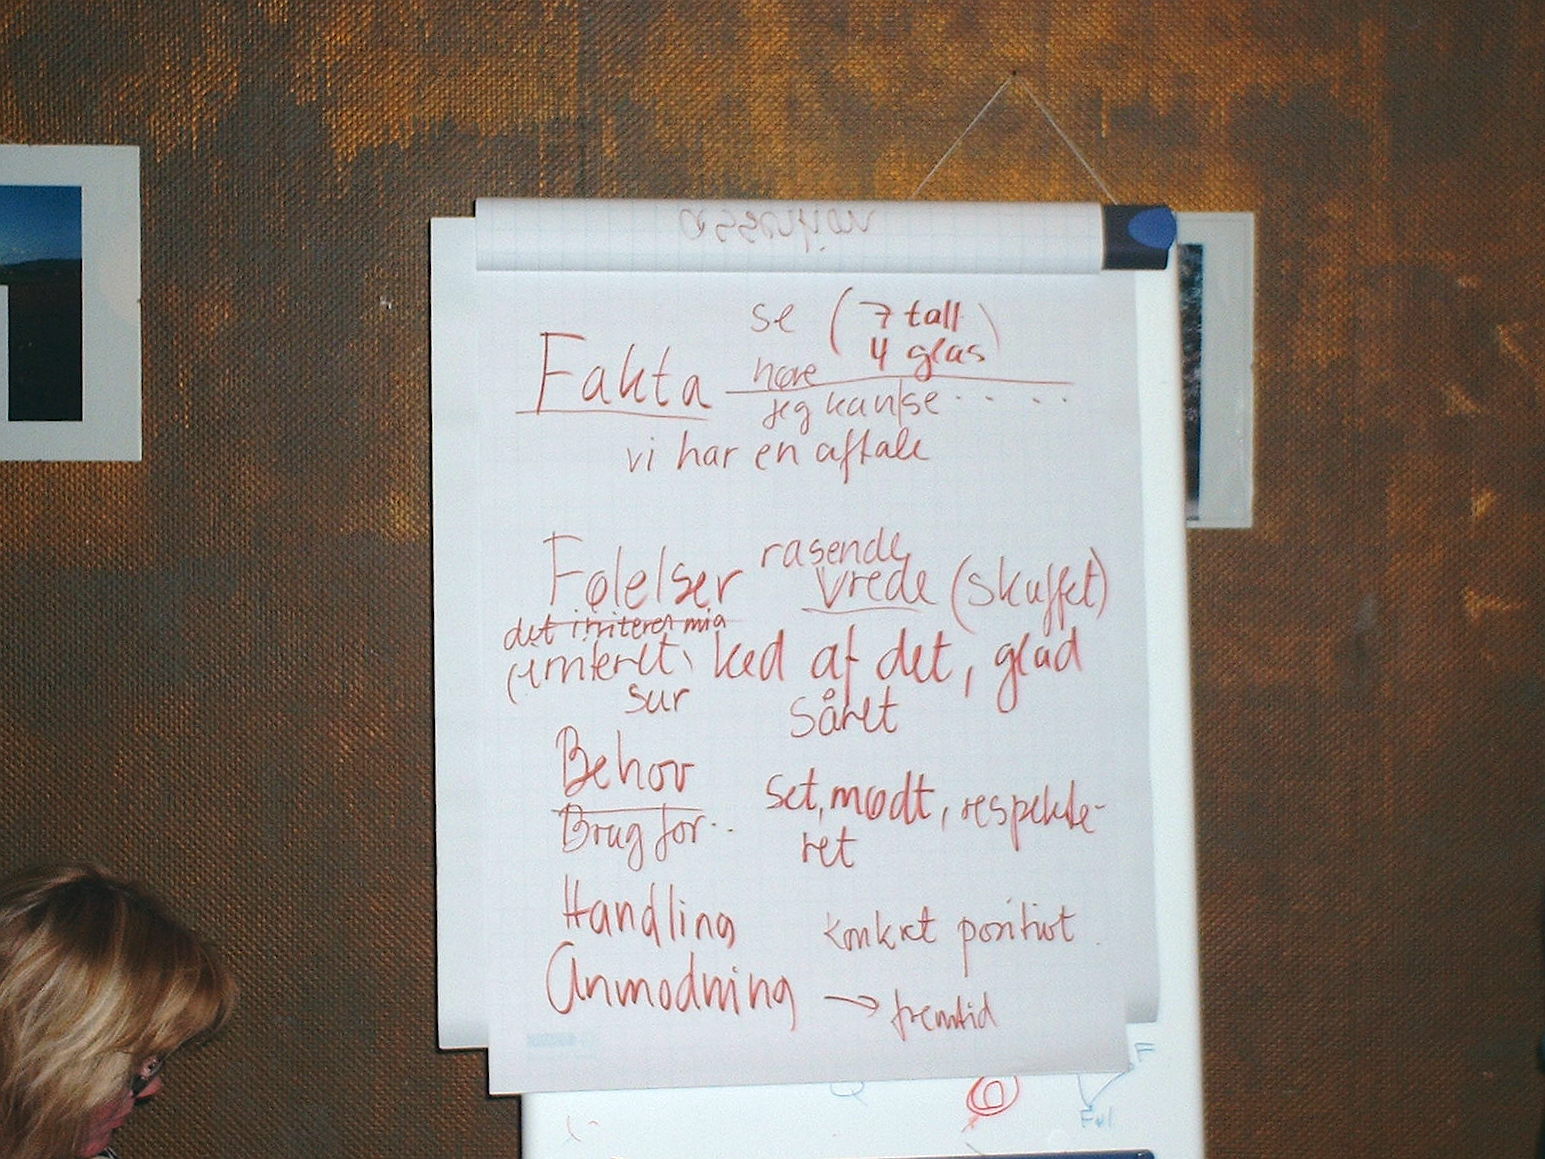 se (7 tall
4 glas)
Fakta høre
jeg kan/se .. . ..
vi har en aftale
Følelser rasende
vrede (skuffet)
det irriterer mig
ked af det, glad
sur såret
Behov
set, mødt, respekte-
ret
Brug for...
Handling konkret positivt
Anmodning → fremtid
F
Føl